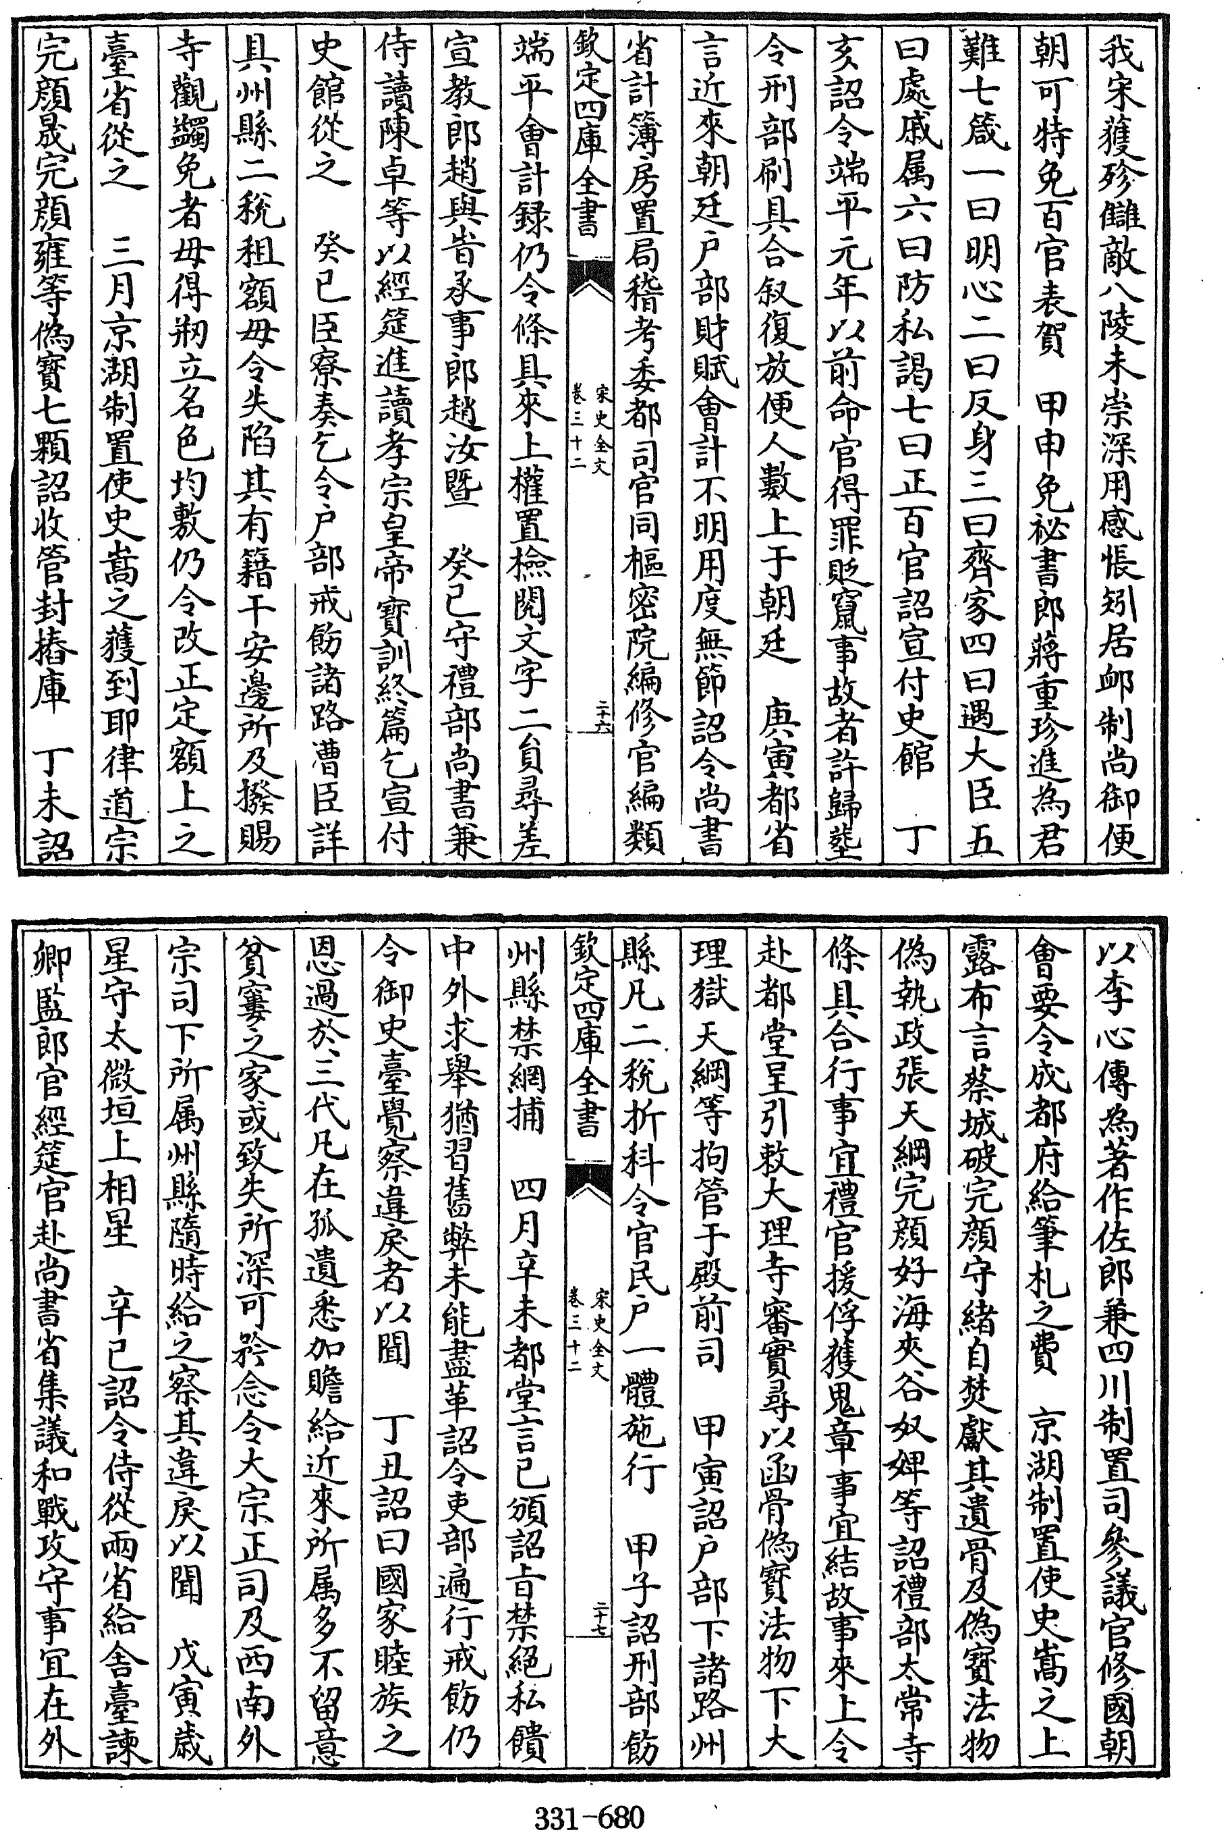 我宋獲殄讎敵八陵未崇深用感悵矧居邮制尚御便
朝可特免百官表賀　甲申免祕書郎蔣重珍進為君
難七箴一曰明心二曰反身三曰齊家四曰遇大臣五
曰處戚属六曰防私謁七曰正百官詔宣付史館　丁
亥詔令端平元年以前命官得罪貶竄事故者許歸塟
令刑部刷具合叙復放便人數上于朝廷　庚寅都省
言近來朝廷户部財賦會計不明用度無節詔令尚書
省計簿房置局稽考委都司官同樞密院編修官編類
欽定四庫全書
宋史全文
卷三十二
二十六
端平會計録仍令條具來上權置檢閱文字二員尋差
宣教郎趙與旹承事郎趙汝暨　癸已守禮部尚書兼
侍讀陳卓等以經筵進讀孝宗皇帝寳訓終篇乞宣付
史館從之　癸已臣寮奏乞令户部戒飭諸路漕臣詳
具州縣二税租額毋令失陷其有籍干安邊所及撥賜
寺觀蠲免者毋得剏立名色均敷仍令改正定額上之
臺省從之　三月京湖制置使史嵩之獲到耶律道宗
完顔晟完顔雍等偽寳七顆詔收管封樁庫　丁未詔
以李心傳為著作佐郎兼四川制置司參議官修國朝
會要令成都府給筆札之費　京湖制置使史嵩之上
露布言蔡城破完顔守緒自焚獻其遺骨及偽寳法物
偽執政張天綱完顔好海夾谷奴婢等詔禮部太常寺
條具合行事宜禮官援俘獲鬼章事宜結故事來上令
赴都堂呈引敕大理寺審實尋以函骨偽寳法物下大
理獄天綱等拘管于殿前司　甲寅詔户部下諸路州
縣凡二税折科令官民户一體施行　甲子詔刑部飭
欽定四庫全書
宋史全文
卷三十二
二十七
州縣禁網捕　四月辛未都堂言已頒詔㫖禁絕私饋
中外求舉猶習舊弊未能盡革詔令吏部遍行戒飭仍
令御史臺覺察違戾者以聞　丁丑詔曰國家睦族之
恩過於三代凡在孤遺悉加贍給近來所属多不留意
貧窶之家或致失所深可矜念令大宗正司及西南外
宗司下所属州縣隨時給之察其違戾以聞　戊寅歲
星守太微垣上相星　辛已詔令侍從兩省給舍臺諫
卿監郎官經筵官赴尚書省集議和戰攻守事宜在外
331-680